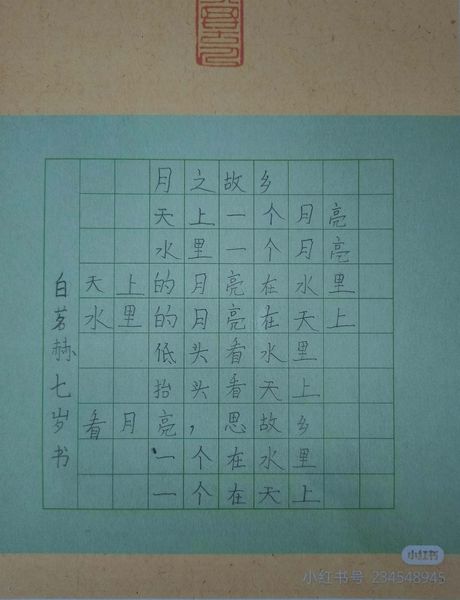 月之故乡
天上一个月亮
水里一个月亮
天上的月亮在水里
水里的月亮在天上
低头看水里
抬头看天上
看月亮，思故乡
一个在水里
一个在天上
白茗赫七岁书
小红书
小红书号 234548945